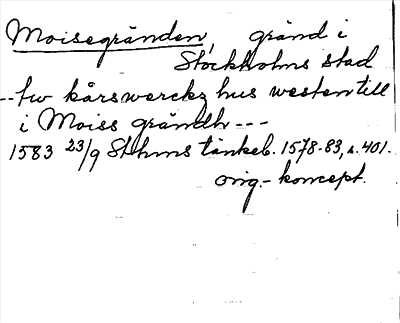 Moisegränden, gränd i
Stockholms stad
--tw kårswerckz hus westen till
i Moiss grändh---
1583 23/9 Sthms tänkeb. 1578-83, s. 401.
orig.-koncept.